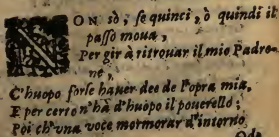 NON sò, se quinci, ò quindi il
passo moua,
Per gir à ritrouar il mio Padro-
ne,
C'huopo forse hauer dee de l'opra mia,
E per certo n'hà d'huopo il pouerello;
Poi ch'vna voce mormorar d'intorno